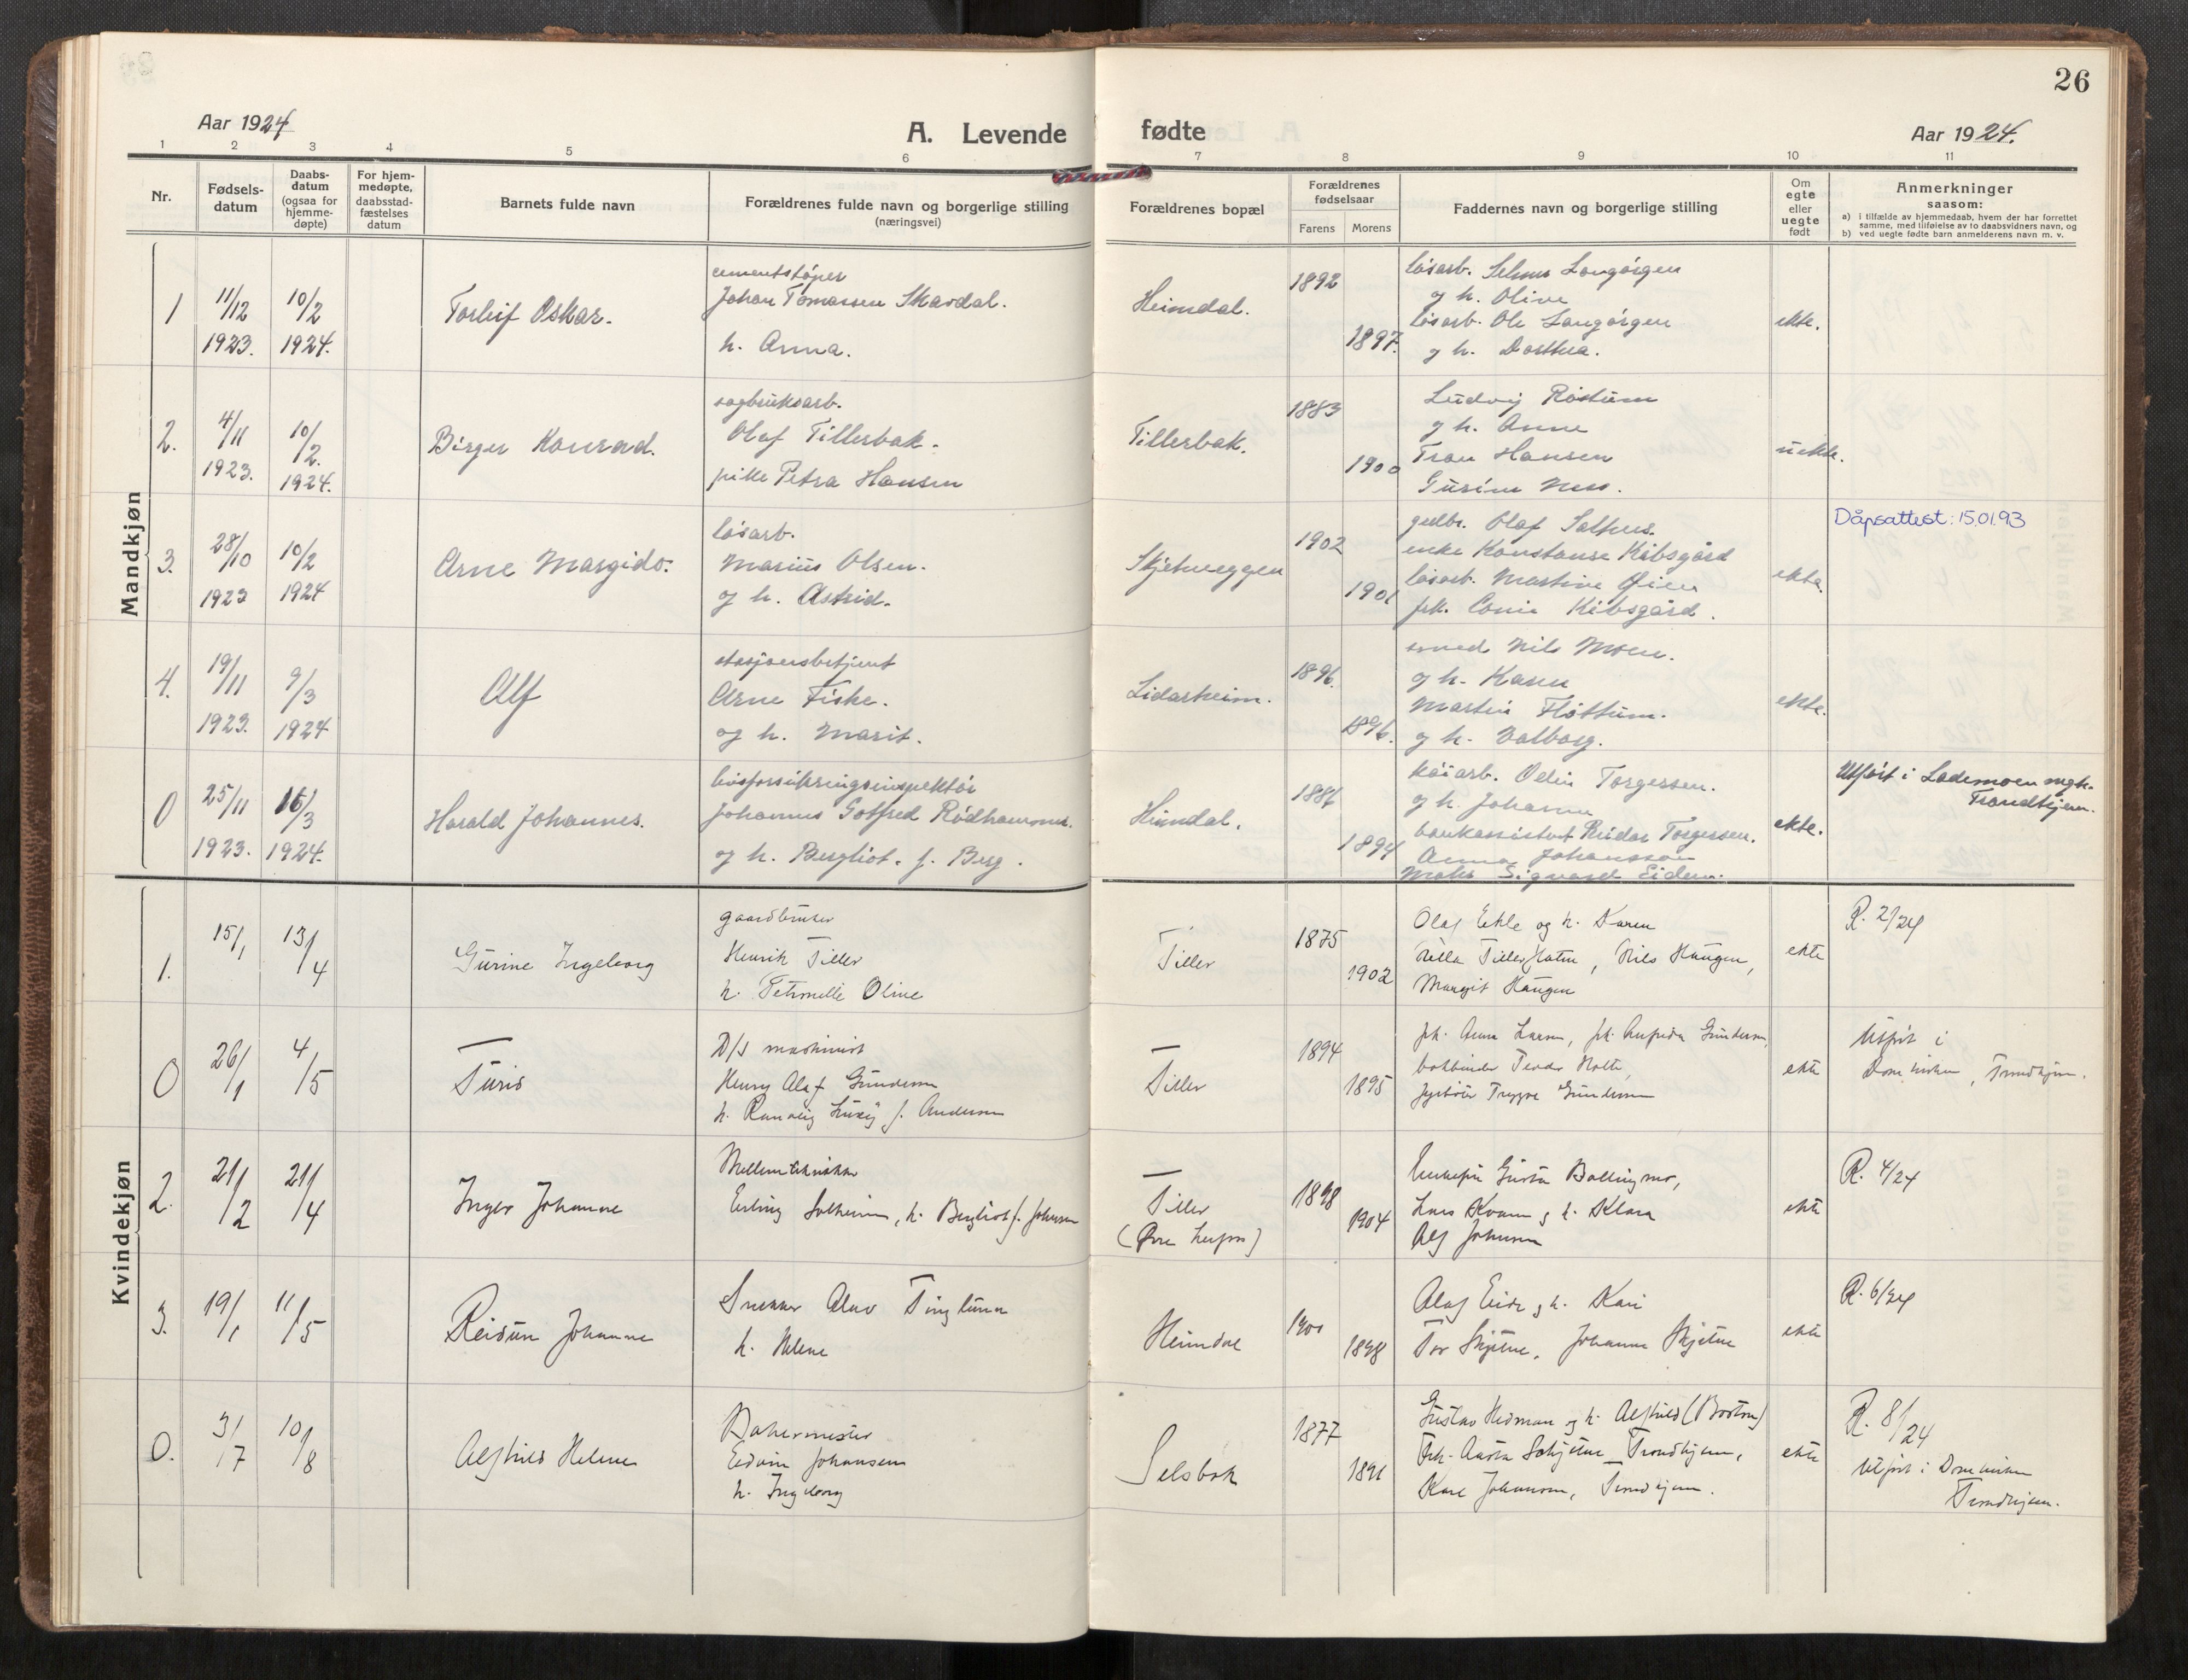 26
Aar 1924
A. Levende fødte
Aar 1924.
1 2 3 4 5 6 7 8 9 10 11
Nr.
Fødsels-
datum
Daabs-
datum
(ogsaa for
hjemme-
døpte)
For hjem-
medøpte,
daabsstad-
fæstelses
datum
Barnets fulde navn
Forældrenes fulde navn og borgerlige stilling
(næringsvei)
Forældrenes bopæl
Forældrenes
fødselsaar
Farens Morens
Faddernes navn og borgerlige stilling
Om
egte
eller
uegte
født
Anmerkninger
saasom:
a) i tilfælde av hjemmedaab, hvem der har forrettet
samme, med tilføielse av to daabsvidners navn, og
b) ved uegte fødte barn anmelderens navn m. v.
Mandkjøn
1
11/12
1923.
10/2
1924.
Torleif Oskar.
cementstøper
Johan Tomassen Skardal.
h. Anna.
Heimdal.
1892
1897.
løsarb. Selmer Langørgen
og h. Oline
løsarb. Ole Langørgen
og h. Dorthea.
ekte.
2.
4/11
1923.
10/2.
1924.
Birger Konrad.
sagbruksarb.
Olaf Tillerbak.
pike Petra Hansen
Tillerbak.
1883
1900
Ludvig Røstum
og h. Anne
Hansen
Gurine Ness.
uekte.
3.
28/10
1923
10/2
1924
Arne Margido.
løsarb.
Marius Olsen.
og h. Astrid.
Skjetneggen
1902
1901
gulbr. Olaf
enke Konstanse Kibsgård
løsarb. Martine Øien
frk. Kibsgård.
ekte.
Dåpsattest: 15.01.93
4.
19/11
1923.
9/3
1924
Alf
stasjonsbetjent
Arne Fiske.
og h. Marit.
Lidarheim.
1896.
1896.
smed Nils Moen.
og h. Karen
Martin Fløttum.
og h. Valborg.
ekte.
0
25/11
1923.
16/3
1924.
Harald Johannes.
livsforsikringsinspektør
Johannes Gotfred
og h. Bergliot. f. Berg.
Heimdal.
1886
1894
Odin Torgersen.
og h. Johanna
bankassistent Reidar Torgersen.
Anna Johansson
Sigvard Eidem.
ekte.
Utført i Lademoen mgh.
Trondhjem.
Kvindekjøn
1.
15/1
13/4
Gurine Ingeborg
gaardbruker
Henrik Tiller
h. Petronelle Oline
Tiller
1875
1902
Olaf Eekle og h. Karen
Tiller Hatm, Nils Haugen,
Margit Haugen
ekte
R. 2/24
0
26/1
4/5
Turid
D/S maskinist
Henry Olaf Gundersen
h. Ranveig f. Andersen
Tiller
1894
1895
frk. Anna Larsen, frk. Gundersen,
bokbinder Holte,
Trygve Gundersen
ekte
Utført i
Domkirken, Trondhjem.
2.
21/2
21/4
Inger Johanne
Mellemtekniker
Erling Solheim, h. Bergliot f. Johnsen
Tiller
(Øvre )
1898
1904
Bollingmo,
Lars Kvam og h. Klara
Alf Johnsen
ekte
R. 4/24
3.
19/1
11/5
Reidun Johanne
Snekker Olav
h. Helene
Heimdal
1900
1898
Olaf Eide og h. Kari
Tor Skjetne, Johanna Skjetne
ekte
R. 6/24
0.
3/7
10/8
Alfhild Helene
Bakermester
Edvin Johansen
h. Ingeborg
Selsbak
1877
1891
Gustav Hedman og h. Alfhild (Boston)
Frk. Aasta Trondhjem,
Karl Johansen, Trondhjem.
ekte
R. 8/24
Utført i Domkirken
Trondhjem.